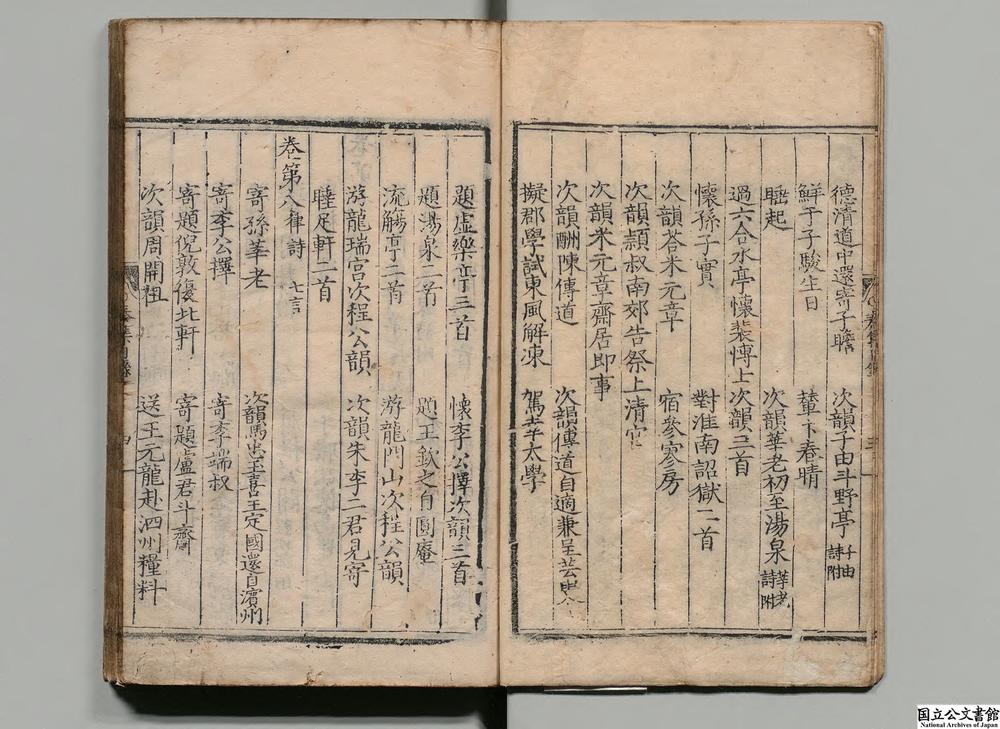 德清道中還寄子瞻　次韻子由斗野亭 子由詩附
鮮于子駿生日　輦下春晴
睡起　次韻莘老初至湯泉 莘老詩附
過六合水亭懷裴博士次韻三首
懷孫子實　對淮南詔獄二首
次韻答米元章　宿參寥房
次韻頴叔南郊告祭上清宮
次韻米元章齋居即事
次韻酬陳傳道　次韻傳道自適兼呈芸叟
擬郡學試東風解凍　駕幸太學
題虛樂亭三首　懷李公擇次韻三首
題湯泉二首　題王欽之自圓庵
流觴亭二首　游龍門山次程公韻
游龍瑞宮次程公韻　次韻朱李二君見寄
睡足軒二首
卷第八律詩 七言
寄孫莘老　次韻馬忠玉喜王定國還自濱州
寄李公擇　寄李端叔
寄題倪敦復北軒　寄題盧君斗齋
次韻周開祖　送王元龍赴泗州糧料
国立公文書館
National Archives of Japan